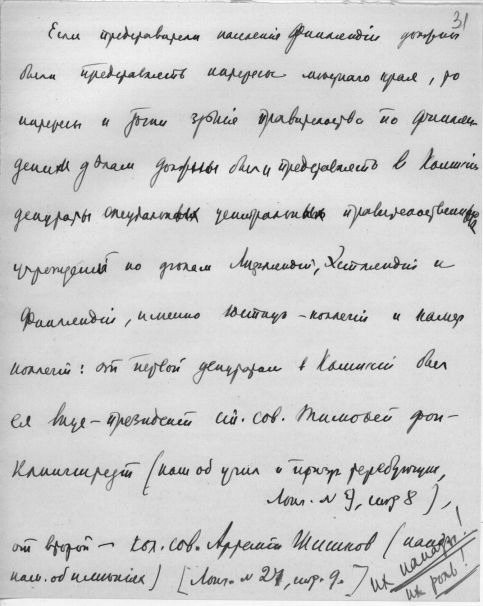 31
Если представители населенія Финляндіи должны
были представлять интересы местнаго края, то
интересы и точки зрѣнія правительства по финлян
дским дѣлам должны были представлять в Комиссіи
депутаты спеціальных центральных правительственных
учрежденій по дѣлам Лифляндіи, Эстляндіи и
Финляндіи, именно Юстиц-коллегіи и Камер
коллегіи: от первой депутатом в Комиссіи был
ея вице-президент ст. сов. Тимофей фон-
Клингштедт (наказ об учил и призр требующих,
Лонг. № 9, стр 8),
от второй – кол. сов. Артемій Шишков (
наказ об имѣніях) [Лонг. № 27, стр. 9.]
их наказы!
их роль!